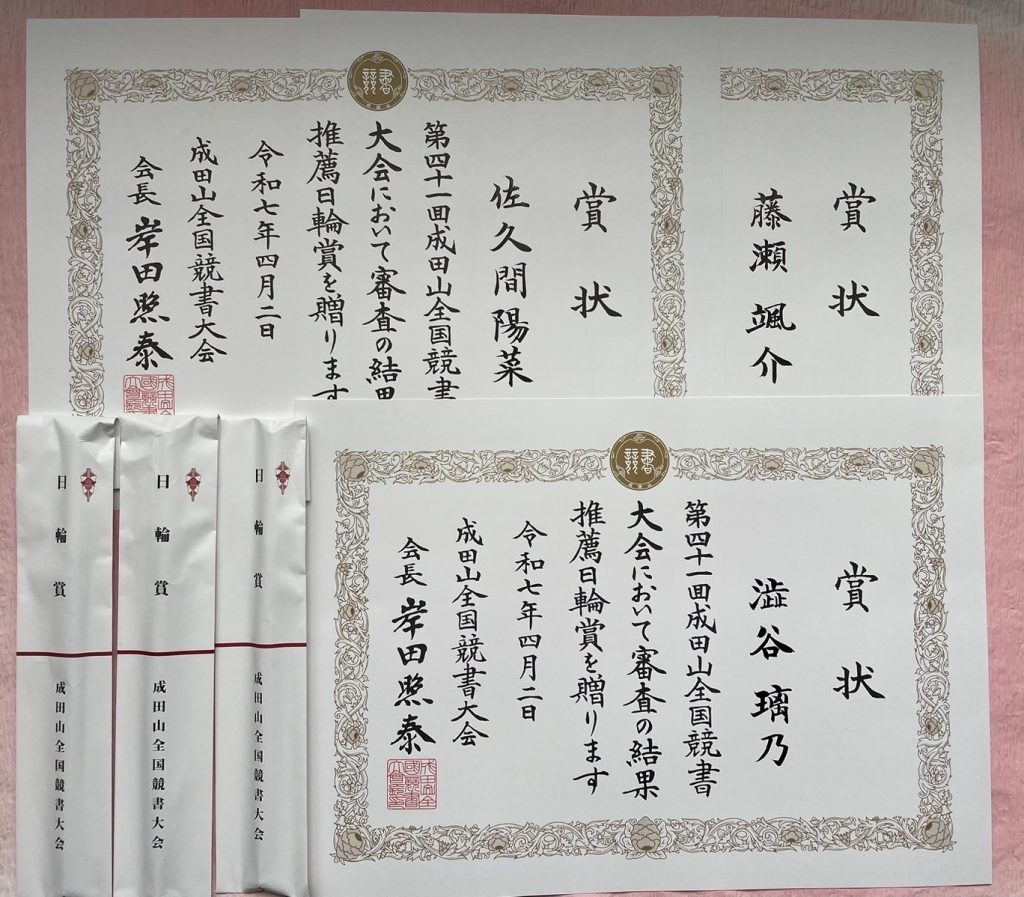 賞状
藤瀬 颯介
競書
賞状
佐久間陽菜
第四十一回成田山全国競書
大会において審査の結果
推薦日輪賞を贈ります
令和七年四月二日
成田山全国競書大会
会長 岸田照泰
競書
賞状
澁谷 璃乃
第四十一回成田山全国競書
大会において審査の結果
推薦日輪賞を贈ります
令和七年四月二日
成田山全国競書大会
会長 岸田照泰
日輪賞
成田山全国競書大会
日輪賞
成田山全国競書大会
日輪賞
成田山全国競書大会